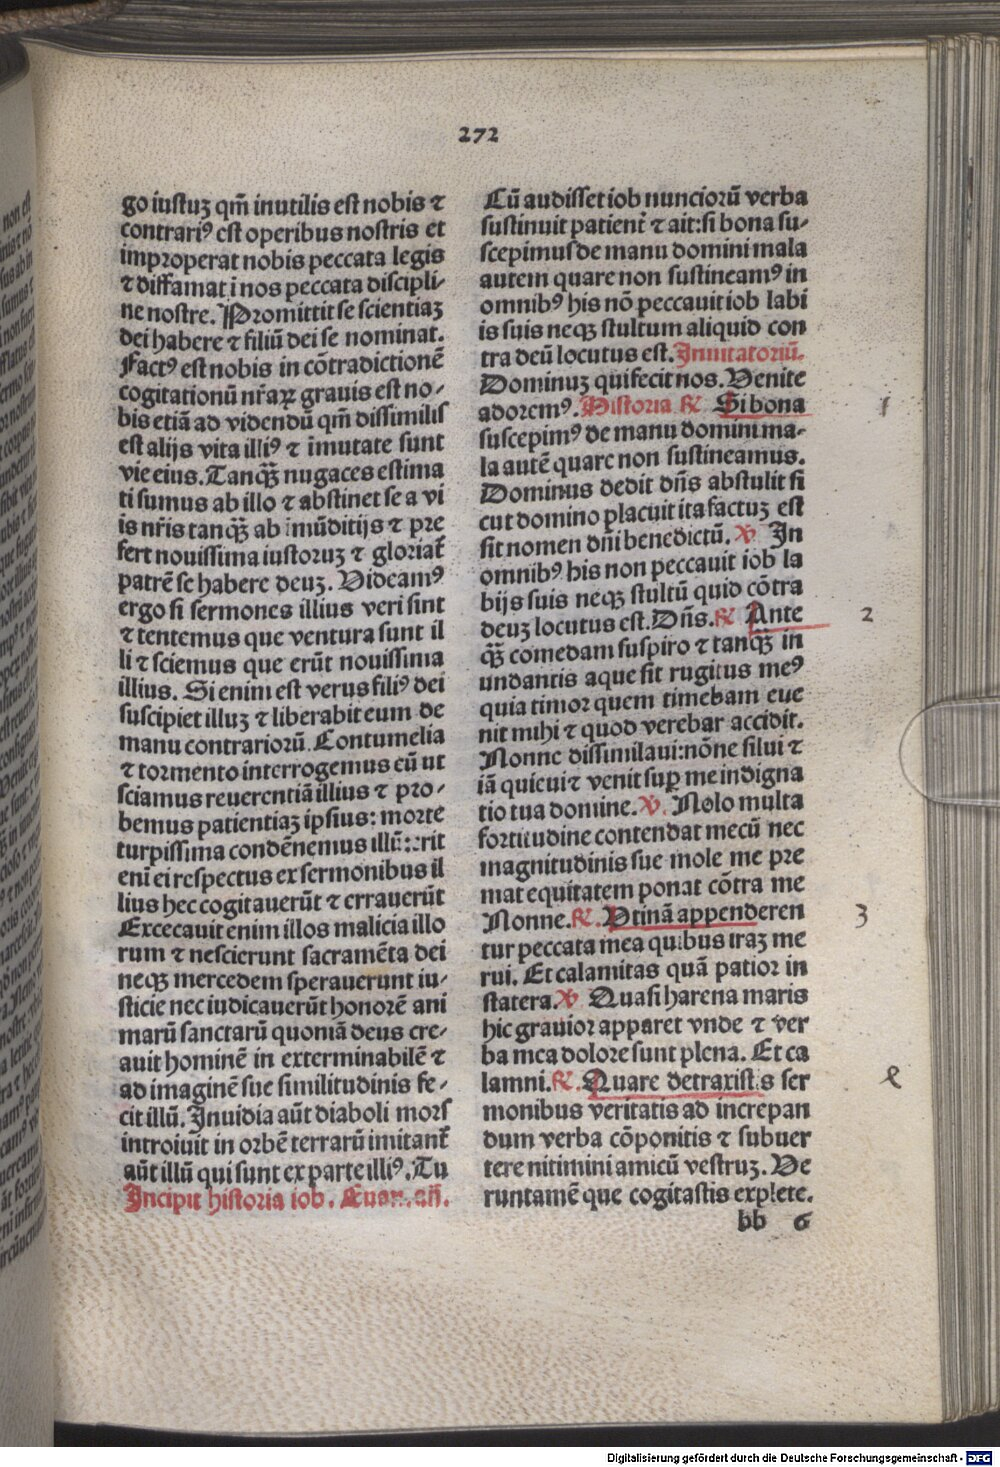 272
go iustuʒ qm̄ inutilis est nobis ⁊
contrariꝰ est operibus nostris et
improperat nobis peccata legis
⁊ diffamat ī nos peccata discipli-
ne nostre. Promittit se scientiaʒ
dei habere ⁊ filiū dei se nominat.
Factꝰ est nobis in cōtradictionē
cogitationū nr̄aꝝ grauis est no-
bis etiā ad videndū qm̄ dissimilis
est alijs vita illiꝰ ⁊ īmutate sunt
vie eius. Tanqꝫ̄ nugaces estima
ti sumus ab illo ⁊ abstinet se a vi
is nr̄is tanqꝫ̄ ab imūditijs ⁊ pre
fert nouissima iustoruʒ ⁊ gloriat̄
patrē se habere deuʒ. Videamꝰ
ergo si sermones illius veri sint
⁊ tentemus que ventura sunt il
li ⁊ sciemus que erūt nouissima
illius. Si enim est verus filiꝰ dei
suscipiet illuʒ ⁊ liberabit eum de
manu contrariorū. Contumelia
⁊ tormento interrogemus eū ut
sciamus reuerentiā illius ⁊ pro-
bemus patientiaʒ ipsius: morte
turpissima condēnemus illū: erit
enī ei respectus ex sermonibus il
lius hec cogitauerūt ⁊ errauerūt
Excecauit enim illos malicia illo
rum ⁊ nescierunt sacramēta dei
neqꝫ mercedem sperauerunt iu-
sticie nec iudicauerūt honorē ani
marū sanctarū quoniā deus cre-
auit hominē in exterminabilē ⁊
ad imaginē sue similitudinis fe-
cit illū. Inuidia aūt diaboli mors
introiuit in orbē terrarū imitant̄
aūt illū qui sunt ex parte illiꝰ. Tu
Incipit historia iob. Euan. an̄.
Cū audisset iob nunciorū verba
sustinuit patient̄ ⁊ ait: si bona su-
scepimus de manu domini mala
autem quare non sustineamꝰ in
omnibꝰ his nō peccauit iob labi
is suis neqꝫ stultum aliquid con
tra deū locutus est. Inuitatoriū.
Dominuʒ qui fecit nos. Venite
adoremꝰ. Historia ℟ Si bona
1
suscepimꝰ de manu domini ma-
la autē quare non sustineamus.
Dominus dedit dn̄s abstulit si
cut domino placuit ita factuʒ est
sit nomen dn̄i benedictū. ℣ In
omnibꝰ his non peccauit iob la
bijs suis neqꝫ stultū quid cōtra
deuʒ locutus est. Dn̄s. ℟ Ante
2
qꝫ̄ comedam suspiro ⁊ tanqꝫ̄ in
undantis aque sit rugitus meꝰ
quia timor quem timebam eue
nit mihi ⁊ quod verebar accidit.
Nonne dissimilaui: nōne silui ⁊
iā quieui ⁊ venit suꝑ me indigna
tio tua domine. ℣. Nolo multa
fortitudine contendat mecū nec
magnitudinis sue mole me pre
mat equitatem ponat cōtra me
Nonne. ℟. Vtinā appenderen
3
tur peccata mea quibus iraʒ me
rui. Et calamitas quā patior in
statera. ℣ Quasi harena maris
hic grauior apparet vnde ⁊ ver
ba mea dolore sunt plena. Et ca
lamni. ℟. Quare detraxistis ser
monibus veritatis ad increpan
dum verba cōponitis ⁊ subuer
tere nitimini amicū vestruʒ. Ve
runtamē que cogitastis explete.
bb 6
Digitalisierung gefördert durch die Deutsche Forschungsgemeinschaft - DFG